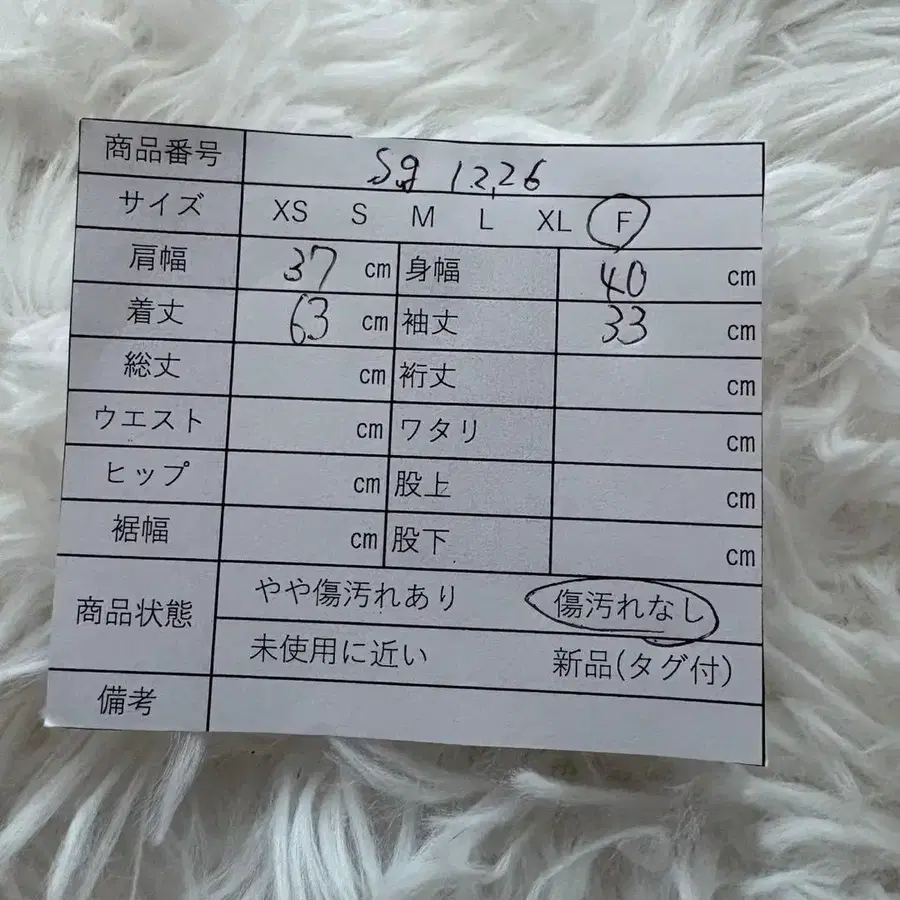 商品番号 Sg 12,26
サイズ XS S M L XL F
肩幅 37 cm 身幅 40 cm
着丈 63 cm 袖丈 33 cm
総丈 cm 裄丈 cm
ウエスト cm ワタリ cm
ヒップ cm 股上 cm
裾幅 cm 股下 cm
商品状態 やや傷汚れあり 傷汚れなし
未使用に近い 新品(タグ付)
備考